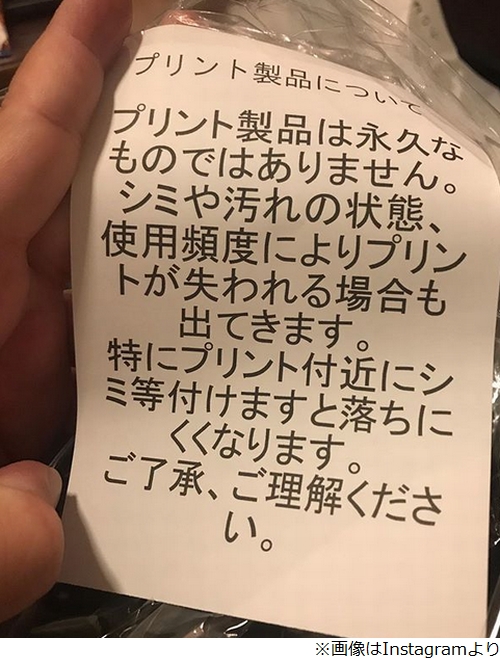 プリント製品について
プリント製品は永久な
ものではありません。
シミや汚れの状態、
使用頻度によりプリン
トが失われる場合も
出てきます。
特にプリント付近にシ
ミ等付けますと落ちに
くくなります。
ご了承、ご理解くださ
い。
※画像はInstagramより